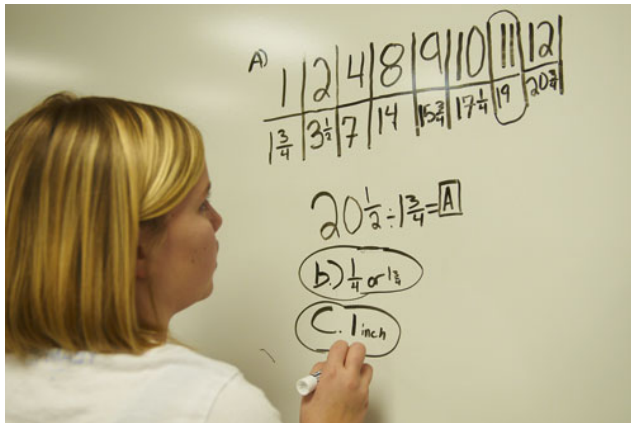 A) 1 2 4 8 9 10 11 12
1 3/4 3 1/2 7 14 15 3/4 17 1/4 19 20 3/4
20 1/2 ÷ 1 3/4 = A
b.) 1/4 or 1 3/4
C. 1 inch